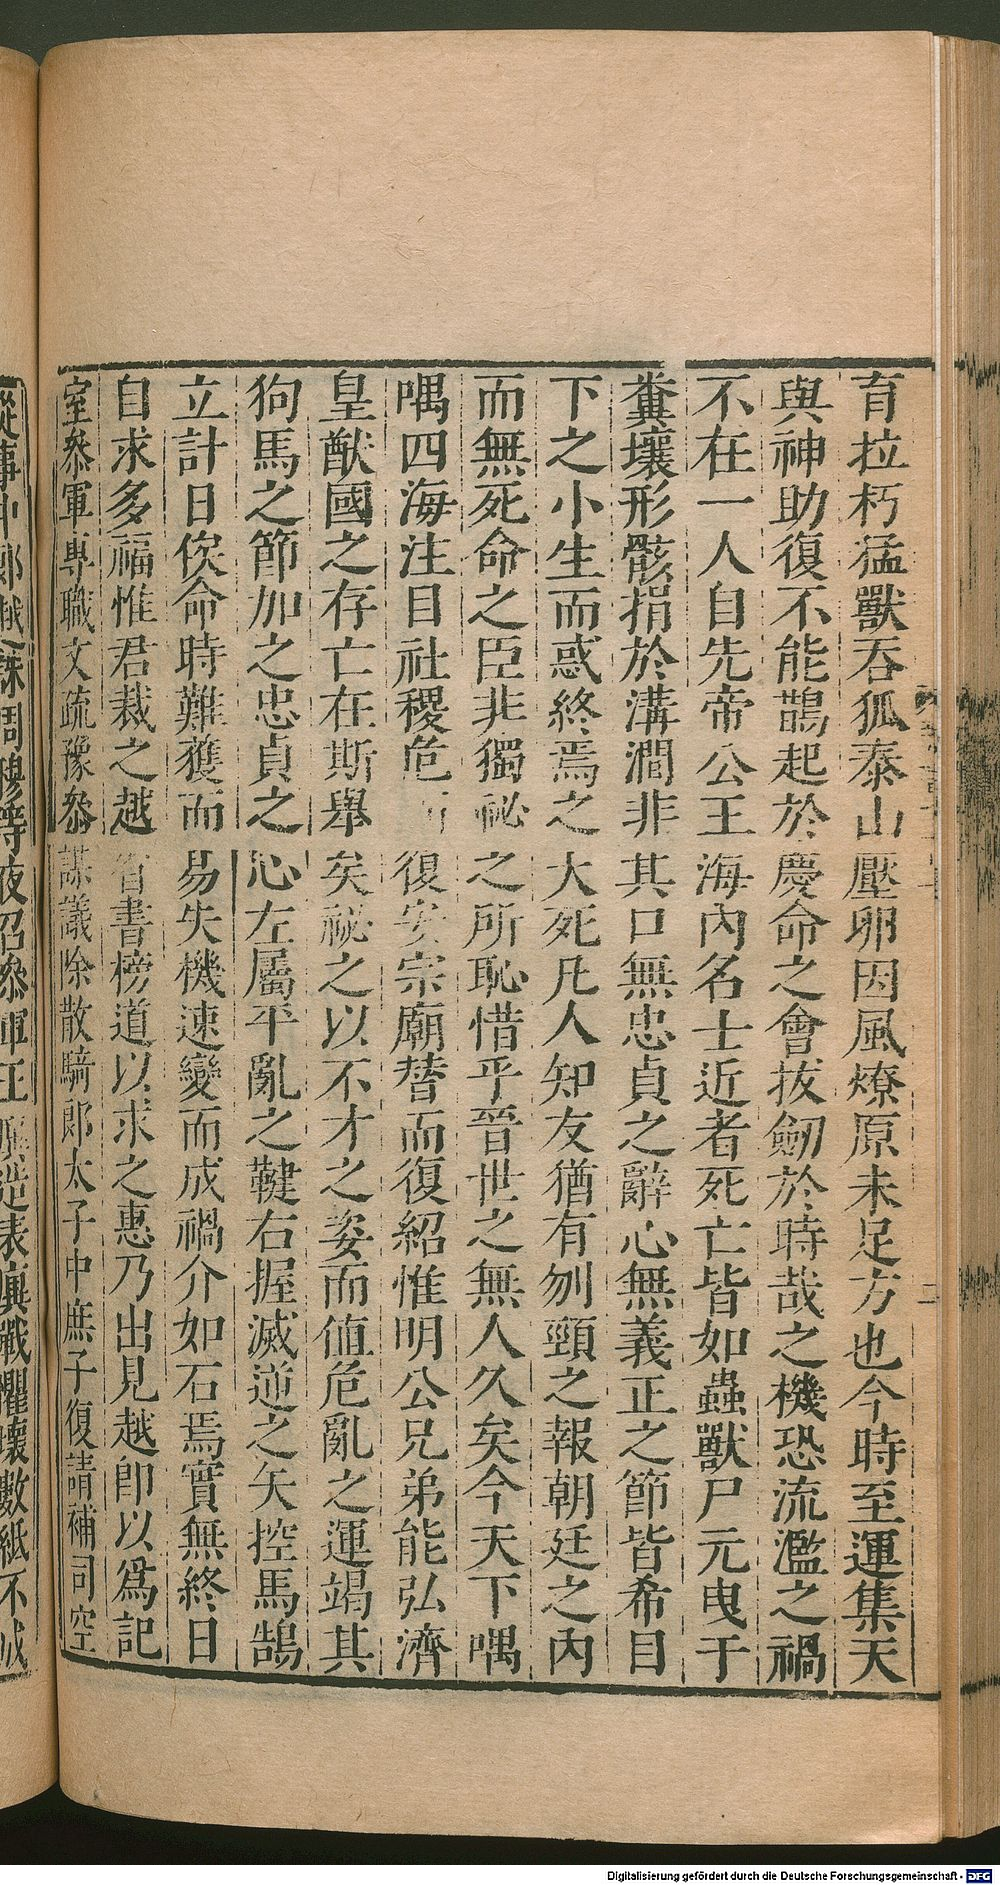 育拉朽猛獸吞狐泰山壓卵因風燎原未足方也今時至運集天
與神助復不能鵲起於慶命之會拔劒於時哉之機恐流濫之禍
不在一人自先帝公王海內名士近者死亡皆如蟲獸尸元曳于
糞壤形骸捐於溝澗非其口無忠貞之辭心無義正之節皆希目
下之小生而惑終焉之大死凡人知友猶有刎頸之報朝廷之內
而無死命之臣非獨祕之所恥惜乎晉世之無人久矣今天下喁
喁四海注目社稷危復安宗廟替而復紹惟明公兄弟能弘濟
皇猷國之存亡在斯舉矣祕之以不才之姿而值危亂之運竭其
狗馬之節加之忠貞之心左屬平亂之鞬右握滅逆之矢控馬鵠
立計日俟命時難獲而易失機速變而成禍介如石焉實無終日
自求多福惟君裁之越省書榜道以求之惠乃出見越卽以爲記
室參軍專職文疏豫參謀議除散騎郎太子中庶子復請補司空
從事中郎越誅周穆等夜召參軍王造表懼壞數紙不成
Digitalisierung gefördert durch die Deutsche Forschungsgemeinschaft - DFG